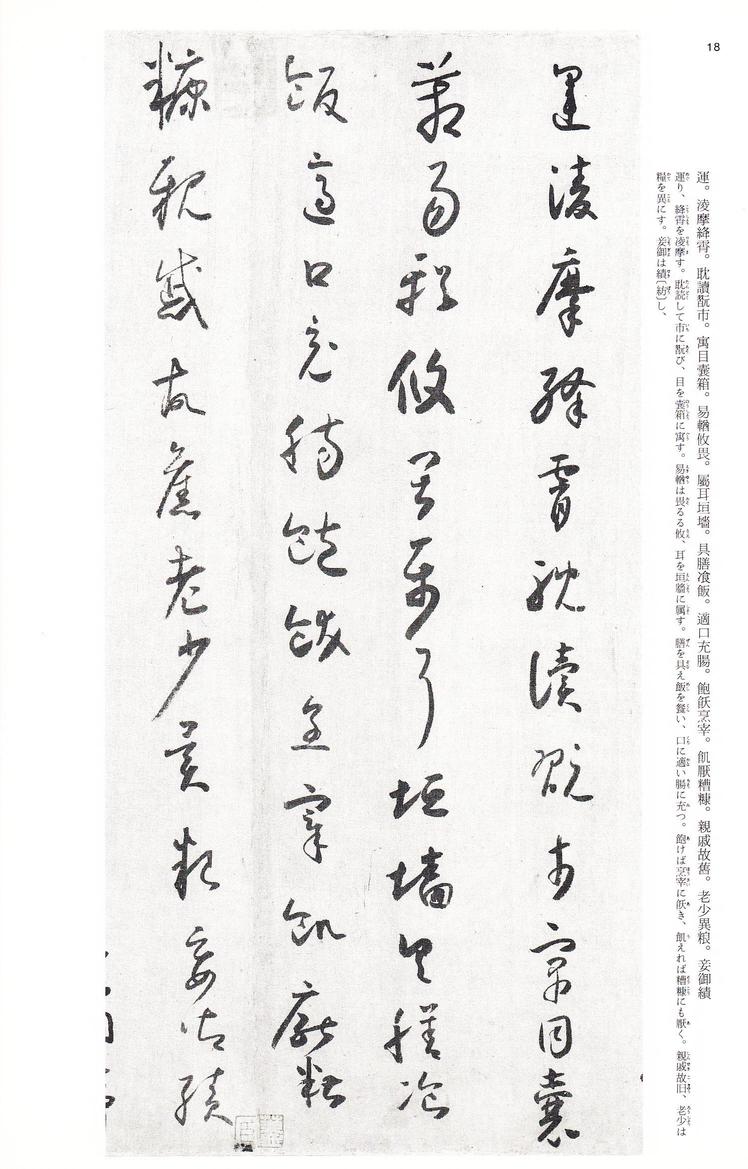 18
運。淩摩絳霄。耽讀翫市。寓目囊箱。易輶攸畏。屬耳垣墻。具膳飡飯。適口充腸。飽飫烹宰。飢厭糟糠。親戚故舊。老少異粮。妾御績
運り、絳霄を凌摩す。耽読して市に翫び、目を囊箱に寓す。易輶は畏るる攸、耳を垣牆に属す。膳を具え飯を餐い、口に適い腸に充つ。飽けば烹宰に飫き、飢えれば糟糠にも厭く。親戚故旧、老少は
糧を異にす。妾御は績〔紡〕し、
運淩摩絳霄耽讀翫市寓目囊
箱易輶攸畏屬耳垣墻具膳飡
飯適口充腸飽飫烹宰飢厭糟
糠親戚故舊老少異粮妾御績